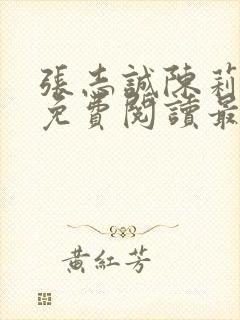 張志誠陳莉
免費閱讀最
黃紅芳